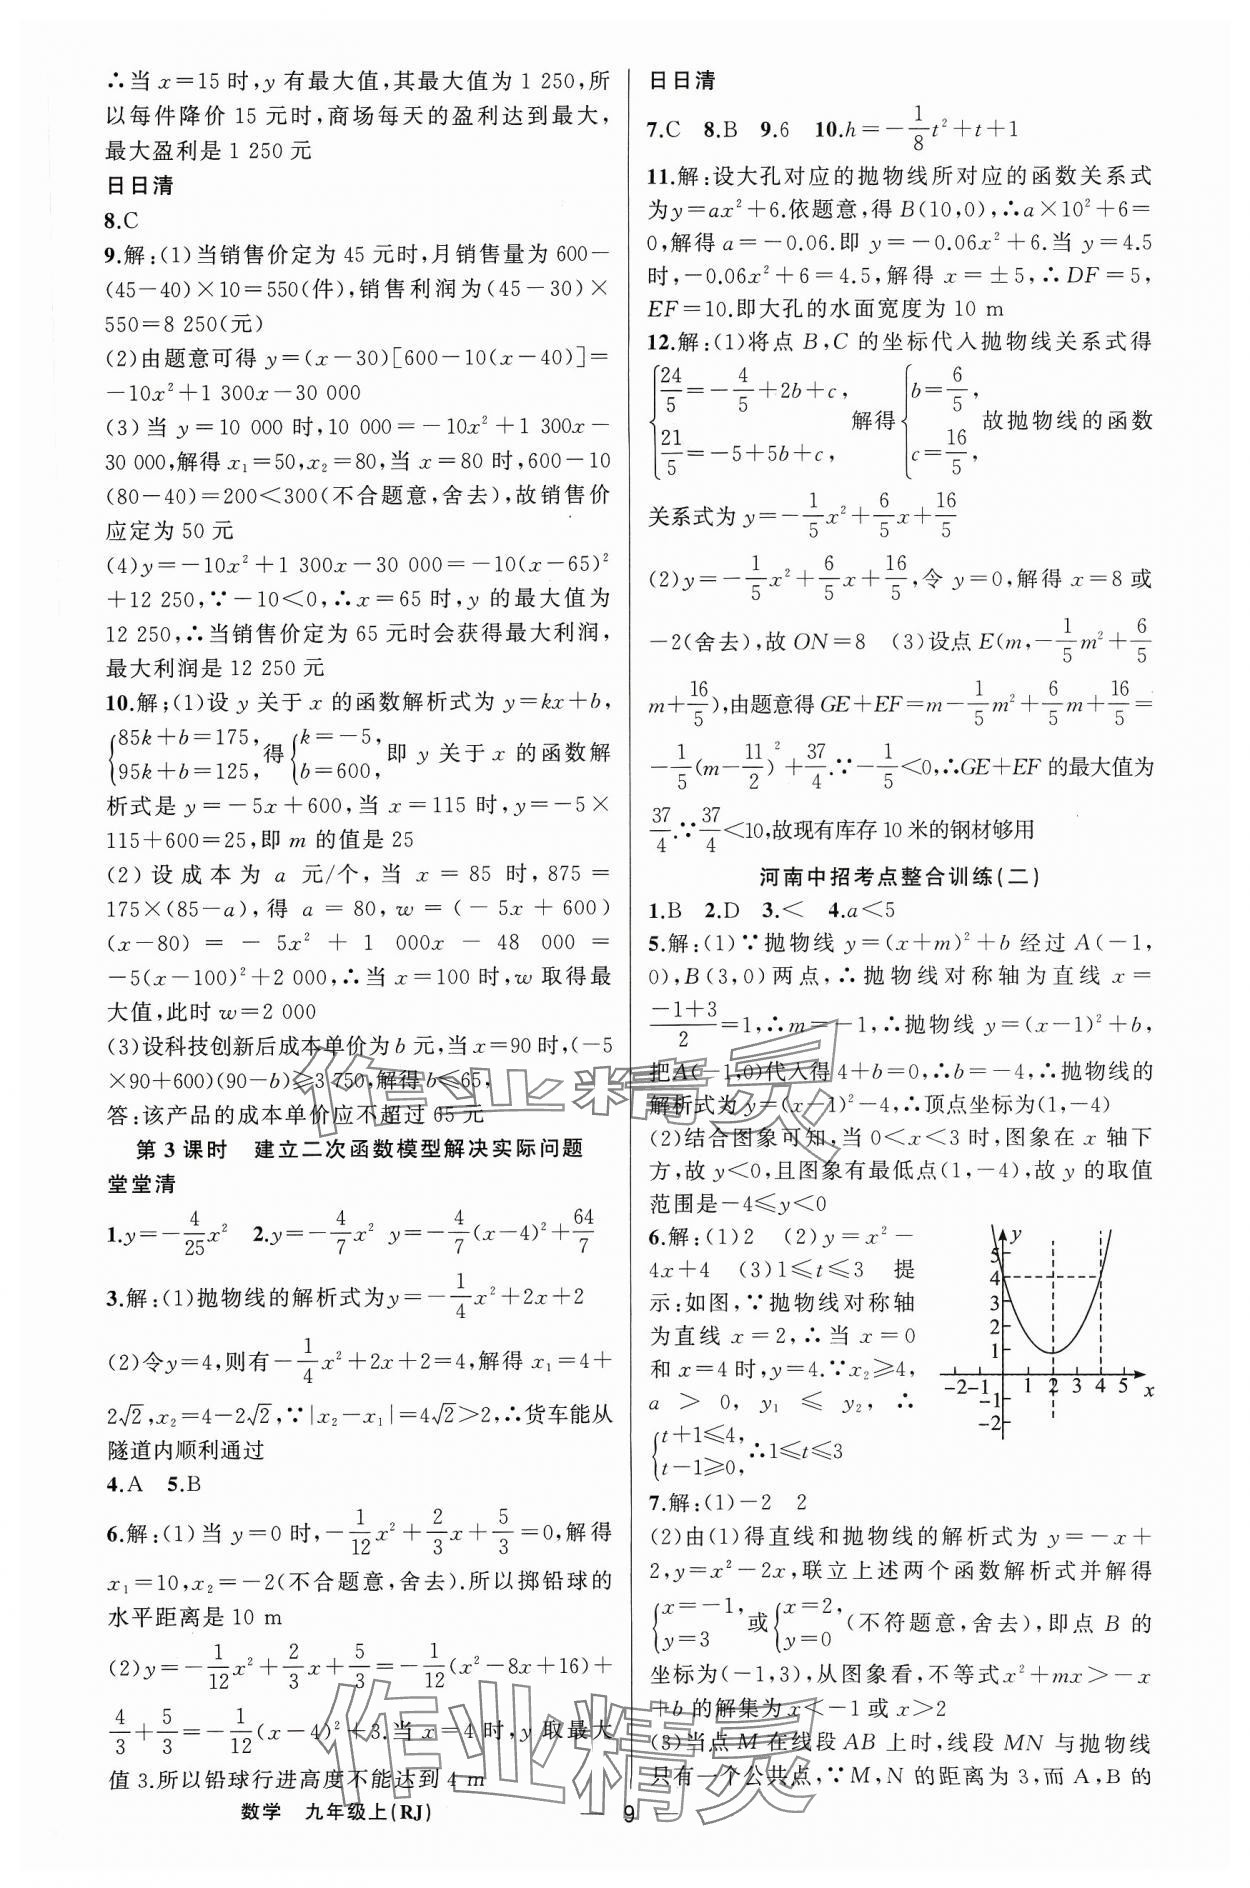 ∴当 x=15 时,y 有最大值,其最大值为 1 250,所
以每件降价 15 元时,商场每天的盈利达到最大,
最大盈利是 1 250 元
日日清
8.C
9.解:(1)当销售价定为 45 元时,月销售量为 600-
(45-40)×10=550(件),销售利润为(45-30)×
550=8 250(元)
(2)由题意可得 y=(x-30)[600-10(x-40)]=
-10x²+1 300x-30 000
(3)当 y=10 000 时,10 000=-10x²+1 300x-
30 000,解得 x₁=50,x₂=80,当 x=80 时,600-10
(80-40)=200<300(不合题意,舍去),故销售价
应定为 50 元
(4)y=-10x²+1 300x-30 000=-10(x-65)²
+12 250,∵-10<0,∴x=65 时,y 的最大值为
12 250,∴当销售价定为 65 元时会获得最大利润,
最大利润是 12 250 元
10.解;(1)设 y 关于 x 的函数解析式为 y=kx+b,
{85k+b=175, 95k+b=125, 得 {k=-5, b=600, 即 y 关于 x 的函数解
析式是 y=-5x+600,当 x=115 时,y=-5×
115+600=25,即 m 的值是 25
(2)设成本为 a 元/个,当 x=85 时,875=
175×(85-a),得 a=80,w=(-5x+600)
(x-80)=-5x²+1 000x-48 000=
-5(x-100)²+2 000,∴当 x=100 时,w 取得最
大值,此时 w=2 000
(3)设科技创新后成本单价为 b 元,当 x=90 时,(-5
×90+600)(90-b)≥3 750,解得 b≤65,
答:该产品的成本单价应不超过 65 元
第 3 课时 建立二次函数模型解决实际问题
堂堂清
1.y=-4/25x² 2.y=-4/7x² y=-4/7(x-4)²+64/7
3.解:(1)抛物线的解析式为 y=-1/4x²+2x+2
(2)令 y=4,则有-1/4x²+2x+2=4,解得 x₁=4+
2√2,x₂=4-2√2,∵|x₂-x₁|=4√2>2,∴货车能从
隧道内顺利通过
4.A 5.B
6.解:(1)当 y=0 时,-1/12x²+2/3x+5/3=0,解得
x₁=10,x₂=-2(不合题意,舍去).所以掷铅球的
水平距离是 10 m
(2)y=-1/12x²+2/3x+5/3=-1/12(x²-8x+16)+
4/3+5/3=-1/12(x-4)²+3.当 x=4 时,y 取最大
值 3.所以铅球行进高度不能达到 4 m
日日清
7.C 8.B 9.6 10.h=-1/8t²+t+1
11.解:设大孔对应的抛物线所对应的函数关系式
为 y=ax²+6.依题意,得 B(10,0),∴a×10²+6=
0,解得 a=-0.06.即 y=-0.06x²+6.当 y=4.5
时,-0.06x²+6=4.5,解得 x=±5,∴DF=5,
EF=10.即大孔的水面宽度为 10 m
12.解:(1)将点 B,C 的坐标代入抛物线关系式得
{24/5=-4/5+2b+c, 21/5=-5+5b+c, 解得 {b=6/5, c=16/5, 故抛物线的函数
关系式为 y=-1/5x²+6/5x+16/5
(2)y=-1/5x²+6/5x+16/5,令 y=0,解得 x=8 或
-2(舍去),故 ON=8 (3)设点 E(m,-1/5m²+6/5
m+16/5),由题意得 GE+EF=m-1/5m²+6/5m+16/5=
-1/5(m-11/2)²+37/4.∵-1/5<0,∴GE+EF 的最大值为
37/4.∵37/4<10,故现有库存 10 米的钢材够用
河南中招考点整合训练(二)
1.B 2.D 3.< 4.a<5
5.解:(1)∵抛物线 y=(x+m)²+b 经过 A(-1,
0),B(3,0)两点,∴抛物线对称轴为直线 x=
(-1+3)/2=1,∴m=-1,∴抛物线 y=(x-1)²+b,
把 A(-1,0)代入得 4+b=0,∴b=-4,∴抛物线的
解析式为 y=(x-1)²-4,∴顶点坐标为(1,-4)
(2)结合图象可知,当 0<x<3 时,图象在 x 轴下
方,故 y<0,且图象有最低点(1,-4),故 y 的取值
范围是-4≤y<0
6.解:(1)2 (2)y=x²-
4x+4 (3)1≤t≤3 提
示:如图,∵抛物线对称轴
为直线 x=2,∴当 x=0
和 x=4 时,y=4.∵x₂≥4,
a>0,y₁≤y₂,∴
{t+1≤4, t-1≥0, ∴1≤t≤3
y
5
4
3
2
1
-2 -1 1 2 3 4 5 x
-1
-2
7.解:(1)-2 2
(2)由(1)得直线和抛物线的解析式为 y=-x+
2,y=x²-2x,联立上述两个函数解析式并解得
{x=-1, y=3 或 {x=2, y=0 (不符题意,舍去),即点 B 的
坐标为(-1,3),从图象看,不等式 x²+mx>-x
+b 的解集为 x<-1 或 x>2
(3)当点 M 在线段 AB 上时,线段 MN 与抛物线
只有一个公共点,∵M,N 的距离为 3,而 A,B 的
数学 九年级上(RJ)
9
作业精灵
作业精灵